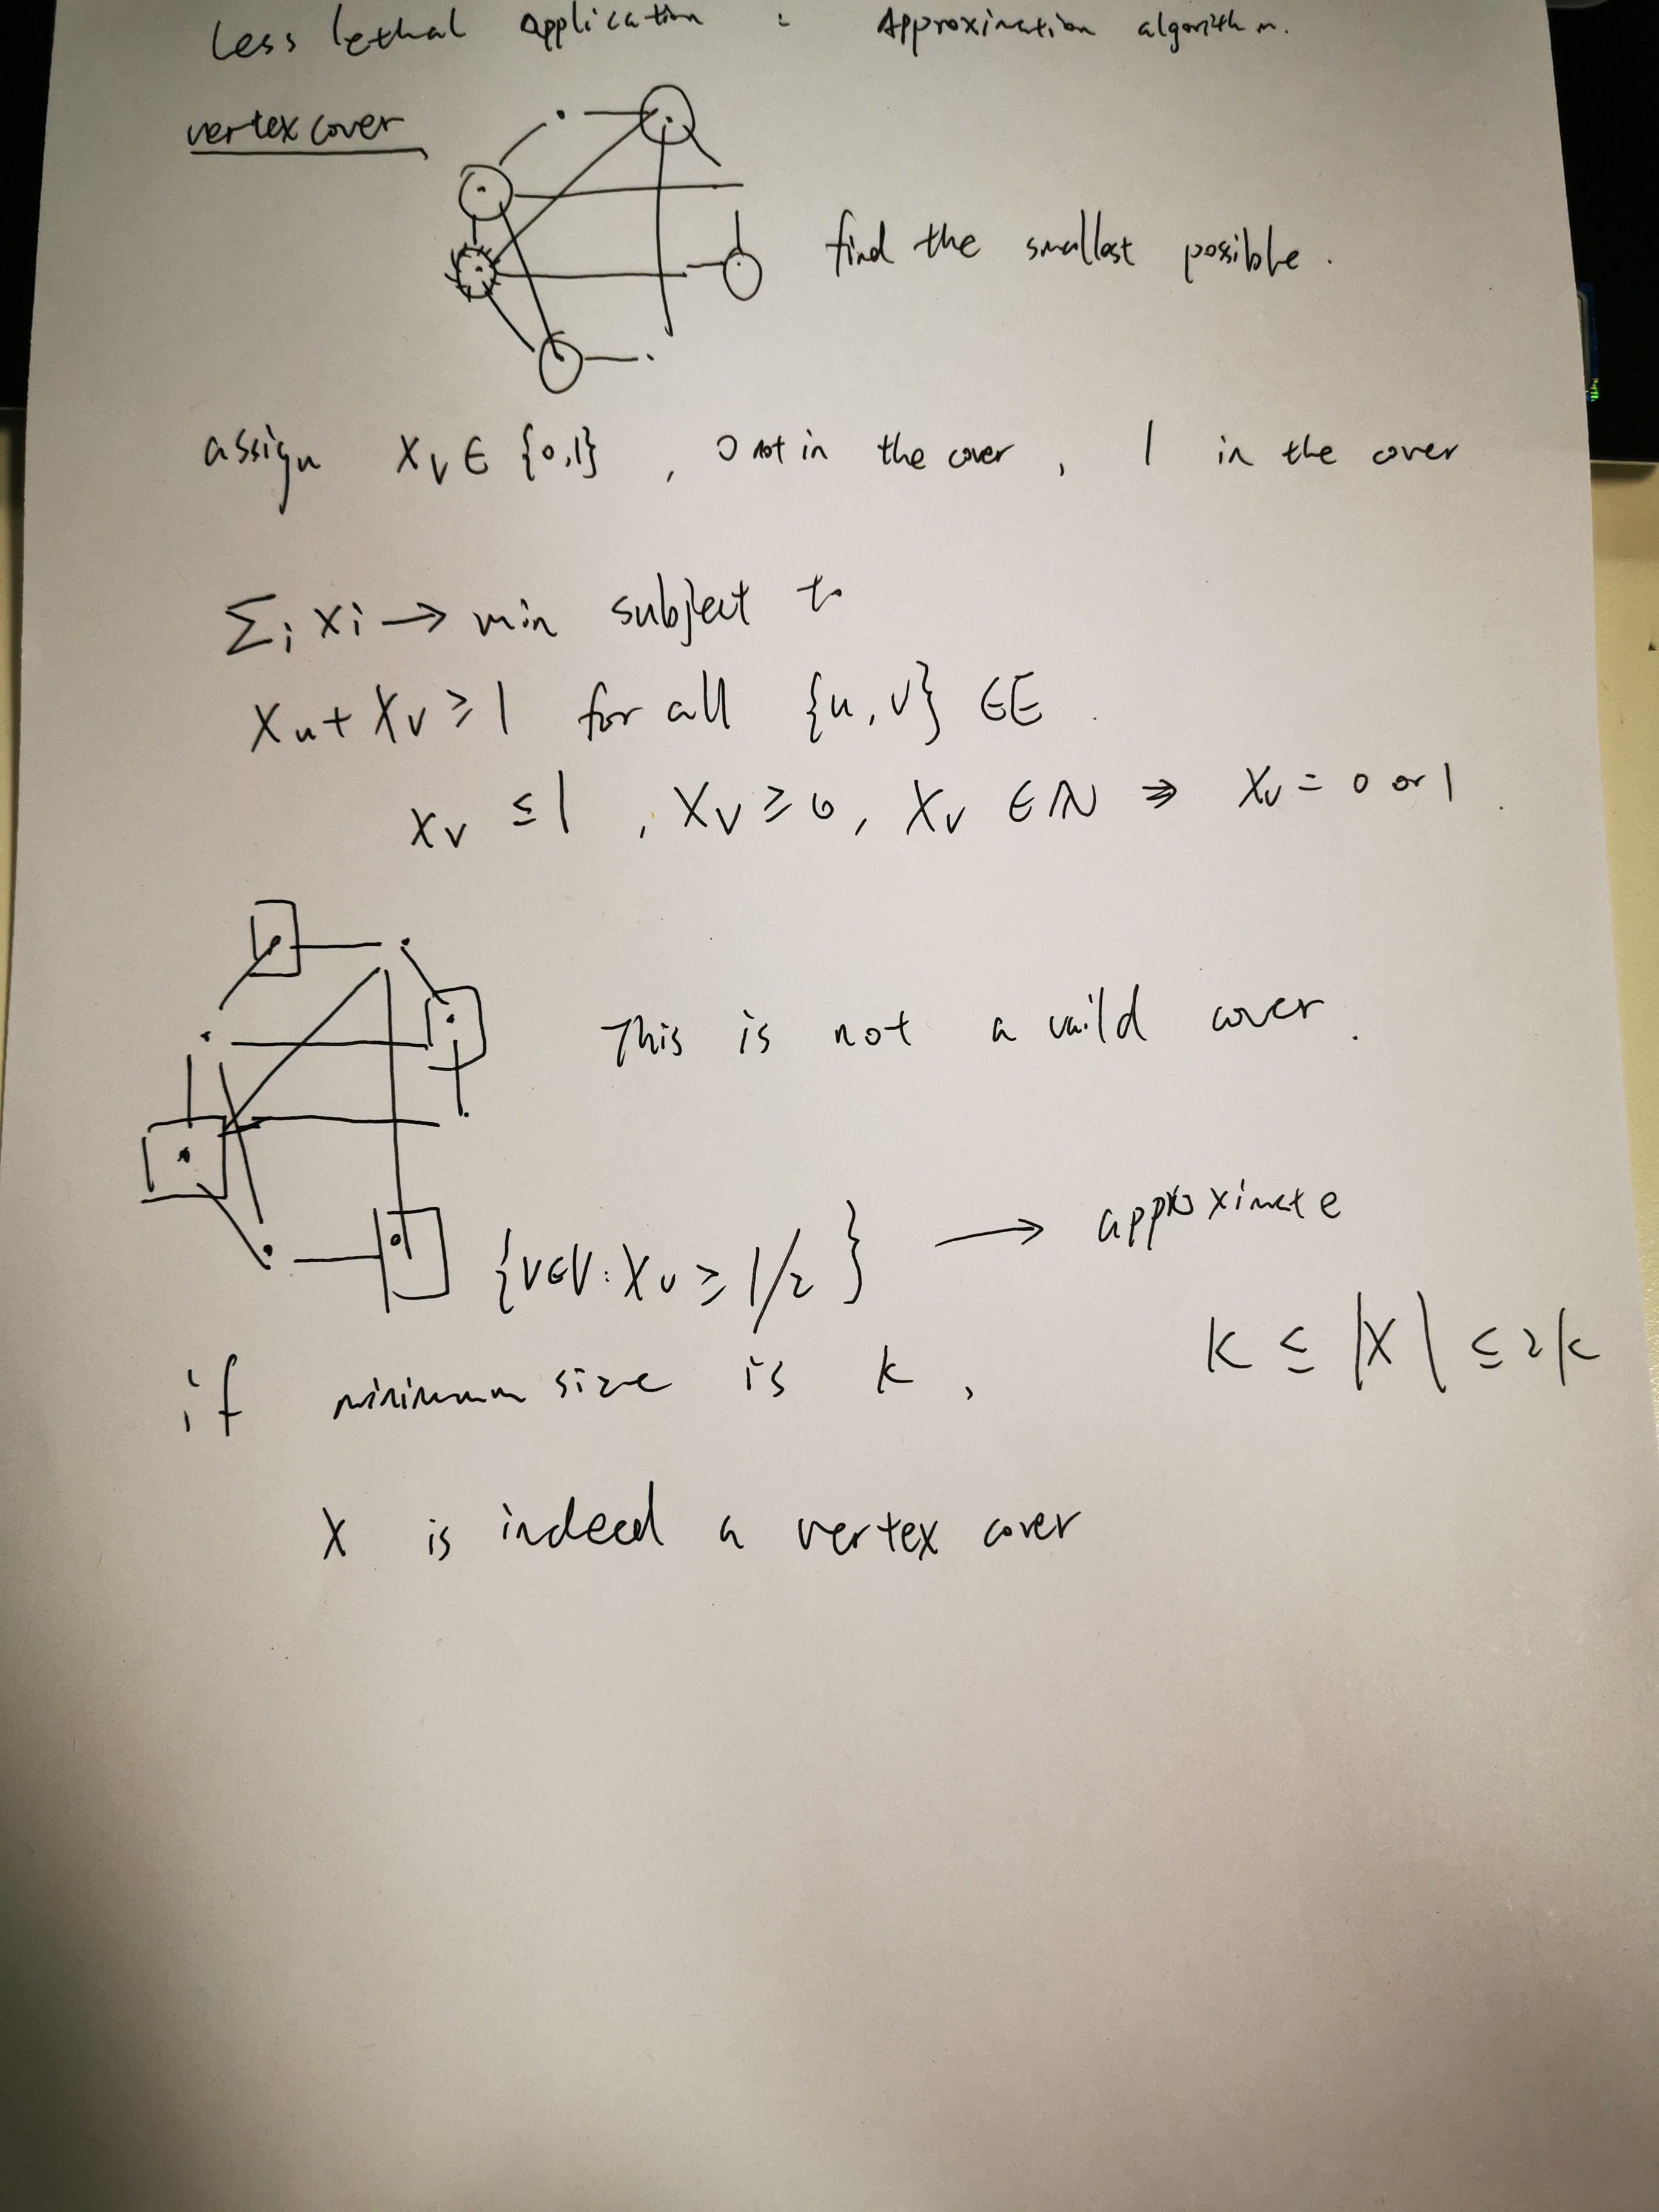 Less lethal application : Approximation algorithm.
vertex cover
find the smallest possible .
assign Xv ∈ {0,1} , 0 not in the cover , 1 in the cover
Σi xi → min subject to
Xu + Xv ≥ 1 for all {u, v} ∈ E .
Xv ≤ 1 , Xv ≥ 0, Xv ∈ ℕ ⇒ Xv = 0 or 1 .
This is not a vaild cover .
{v∈V: Xv ≥ 1/2 } → approximate
if minimum size is k , K ≤ |X| ≤ 2k
X is indeed a vertex cover